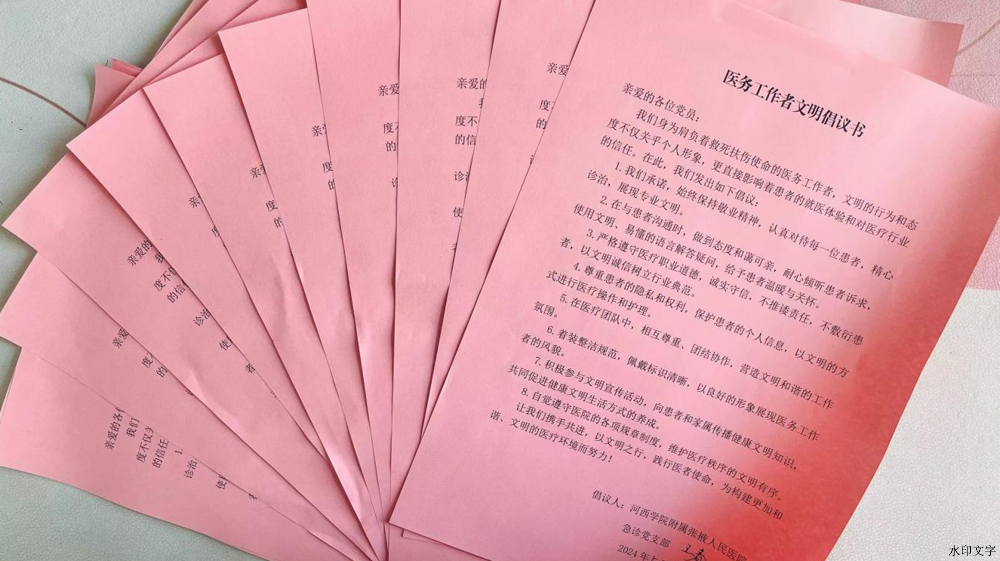 医务工作者文明倡议书
亲爱的各位党员：
我们身为肩负着救死扶伤使命的医务工作者，文明的行为和态
度不仅关乎个人形象，更直接影响着患者的就医体验和对医疗行业
的信任。在此，我们发出如下倡议：
1.我们承诺，始终保持敬业精神，认真对待每一位患者，精心
诊治，展现专业文明。
2.在与患者沟通时，做到态度和蔼可亲，耐心倾听患者诉求，
使用文明、易懂的语言解答疑问，给予患者温暖与关怀。
3.严格遵守医疗职业道德，诚实守信，不推诿责任，不敷衍患
者，以文明诚信树立行业典范。
4.尊重患者的隐私和权利，保护患者的个人信息，以文明的方
式进行医疗操作和护理。
5.在医疗团队中，相互尊重、团结协作，营造文明和谐的工作
氛围。
6.着装整洁规范，佩戴标识清晰，以良好的形象展现医务工作
者的风貌。
7.积极参与文明宣传活动，向患者和家属传播健康文明知识，
共同促进健康文明生活方式的养成。
8.自觉遵守医院的各项规章制度，维护医疗秩序的文明有序。
让我们携手共进，以文明之行，践行医者使命，为构建更加和
谐、文明的医疗环境而努力！
倡议人：河西学院附属张掖人民医院
急诊党支部
2024年
亲爱的
度不
的信
诊治
使
亲爱的
我
度不
的信
诊
使
亲爱的各
我们
度不仅关
的信任
1.
诊治
使用
水印文字